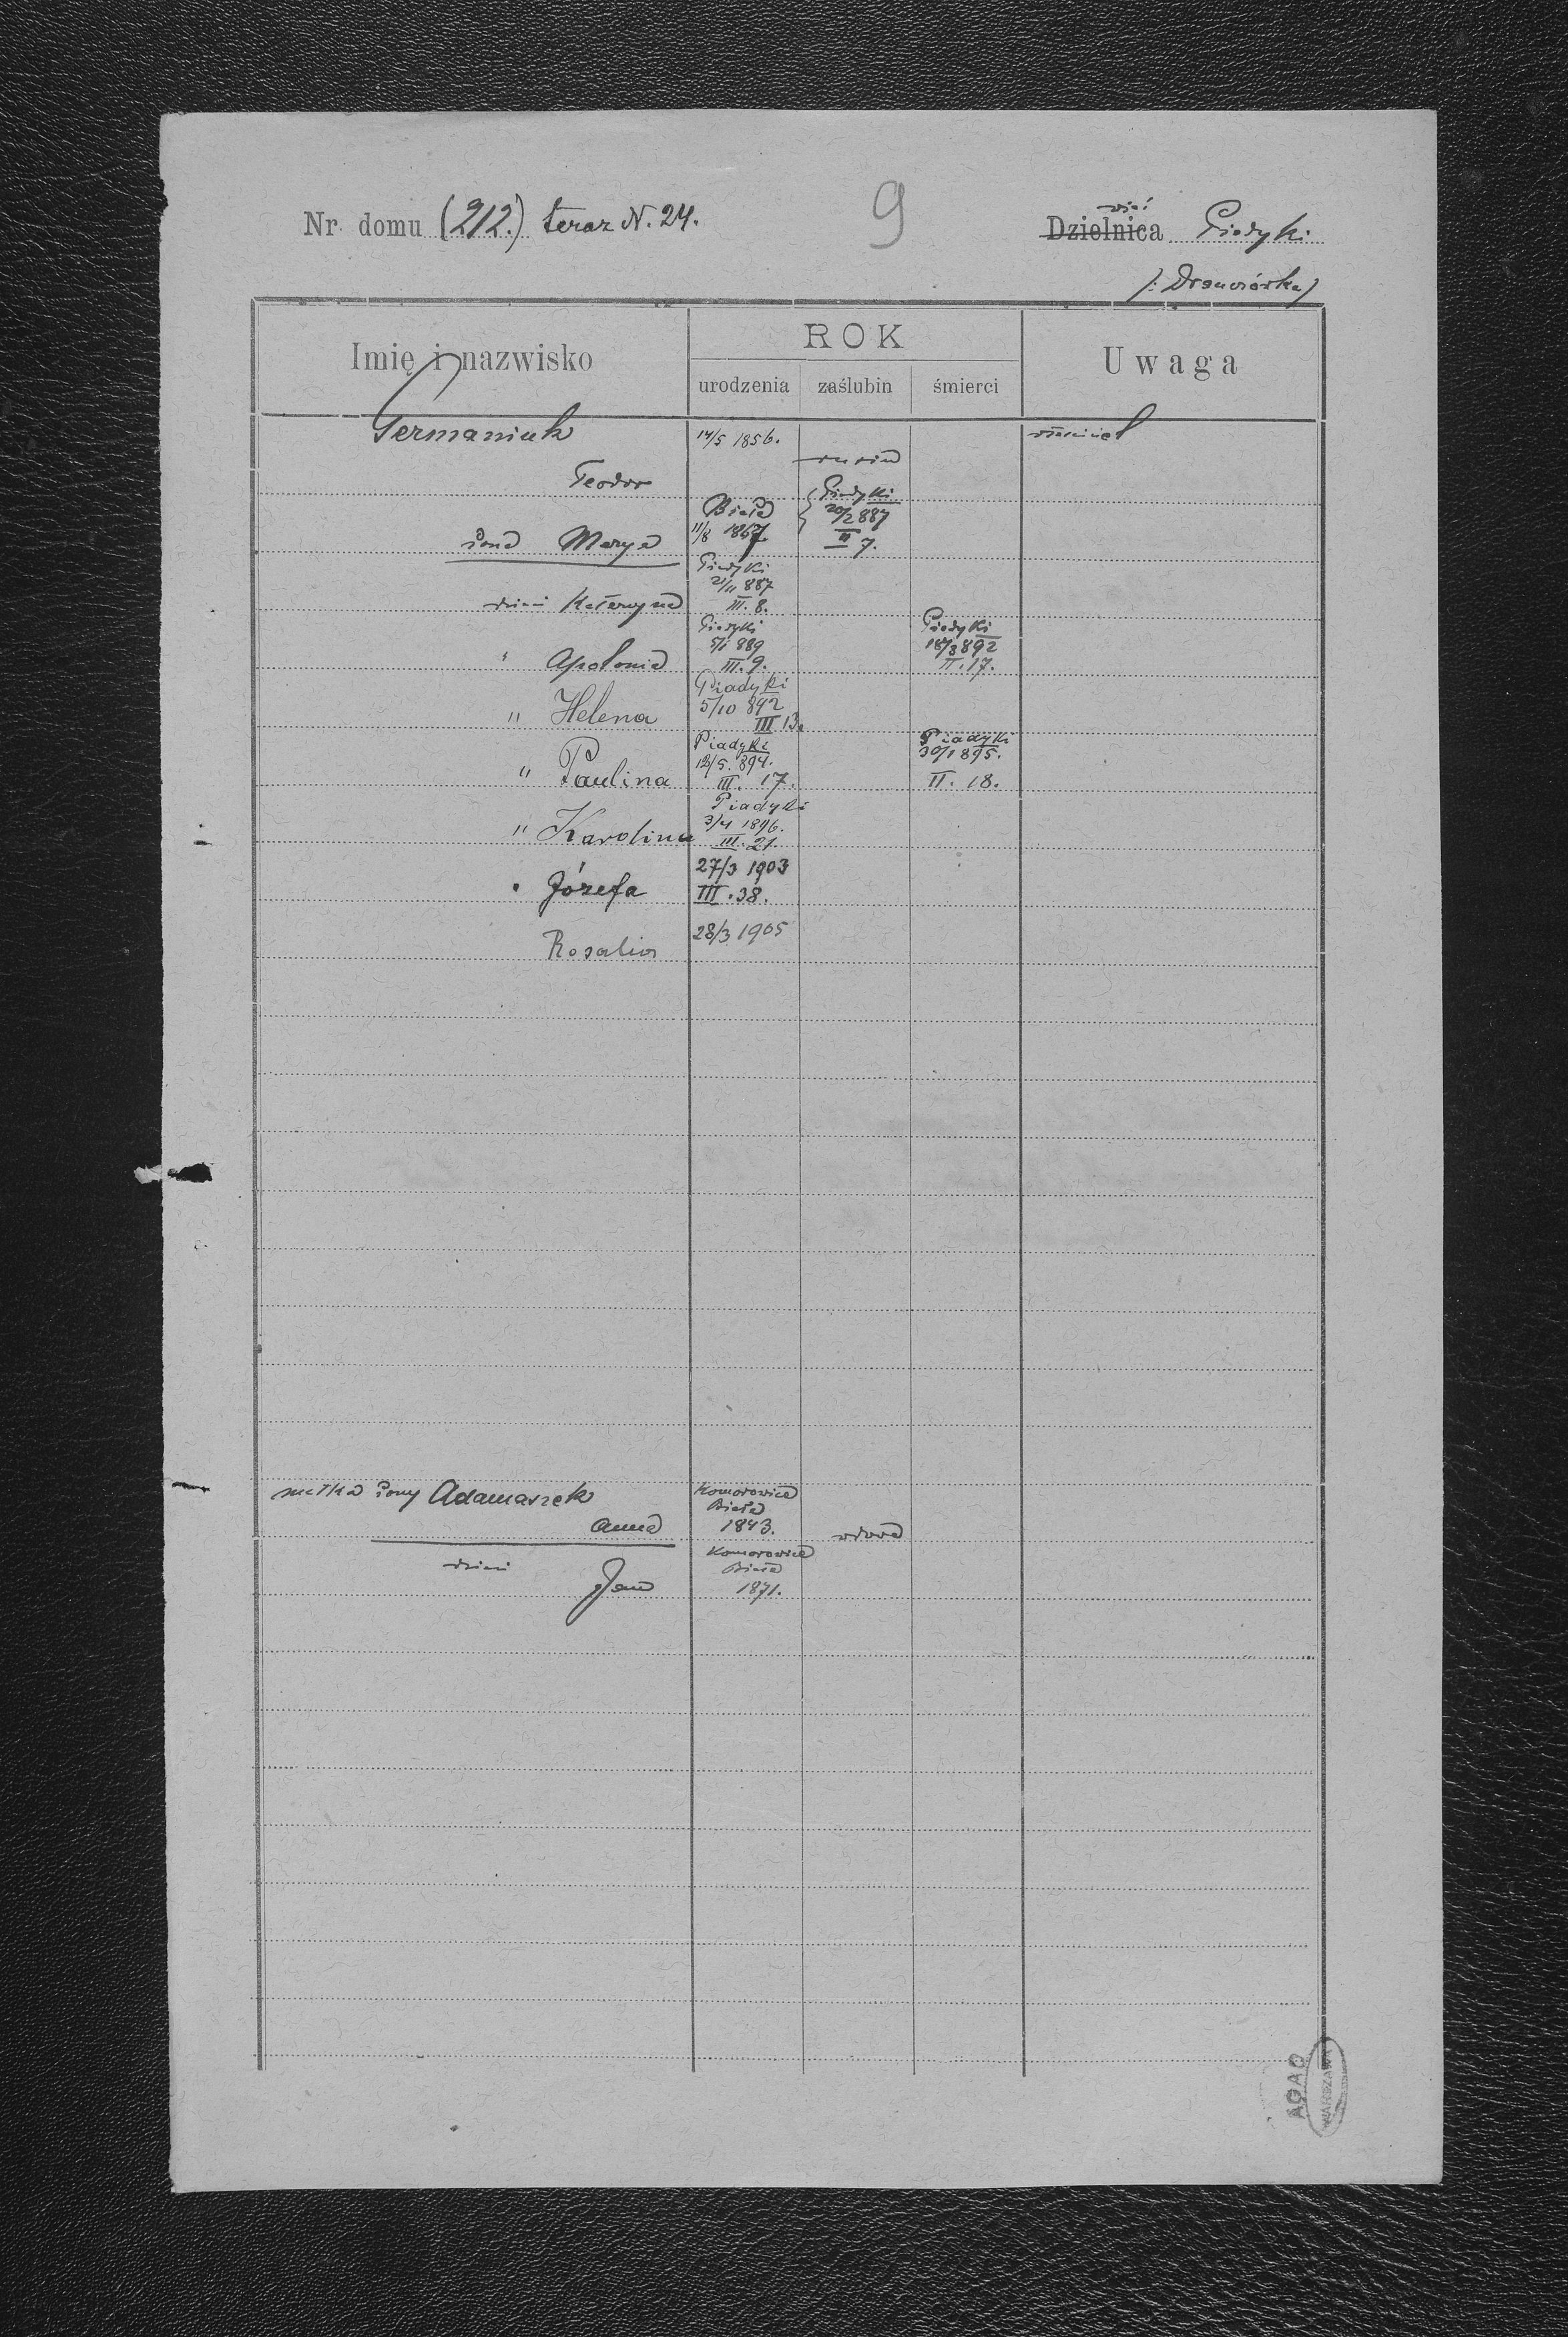 Nr. domu (212.) teraz N. 24.
9
wieś
Dzielnica Piadyki
/: Drauciarka/
Imię i nazwisko
ROK
urodzenia zaślubin śmierci
Uwaga
Germaniuk 14/5 1856.
rusin
Teodor
Biała
11/8 1867.
Piadyki
20/2 887
II 7.
żona Marya
Piadyki
21/11 887
III. 8.
dzieci Katarzyna
Piadyki
5/1 889
III. 9.
Piadyki
18/3 892
II. 17.
" Apolonia
Piadyki
5/10 892
III 13.
" Helena
Piadyki
12/5. 894.
III. 17.
Piadyki
30/1 895.
II. 18.
" Paulina
Piadyki
3/4 1896.
III. 21.
" Karolina
27/3 1903
III. 38.
" Józefa
28/3 1905
Rosalia
matka żony Adamaszek
Anna
Komorowice
Biała
1843.
wdowa
Komorowice
Biała
1871.
dzieci Jan
AGAD
WARSZAWA